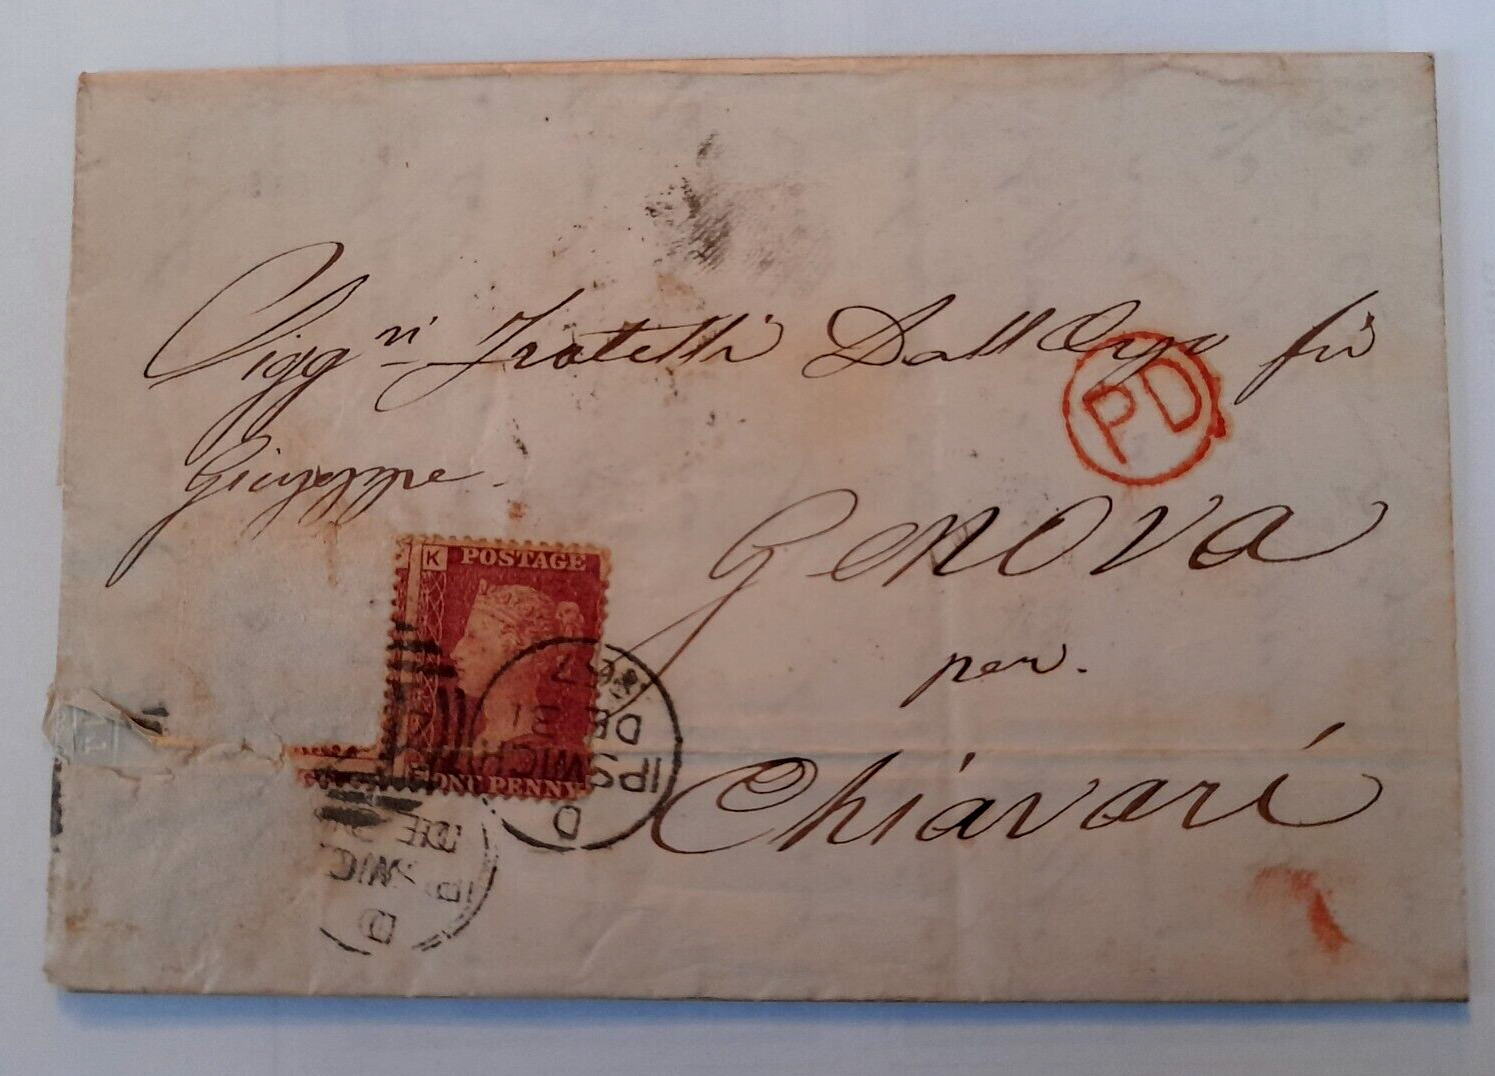 Sigg.ri Fratelli Dall'Orso fù
Giuseppe.
PD
Genova
per.
Chiavari
K POSTAGE
ONE PENNY
D
IPSWICH
DE 31
67
D
IPSWIC
DE